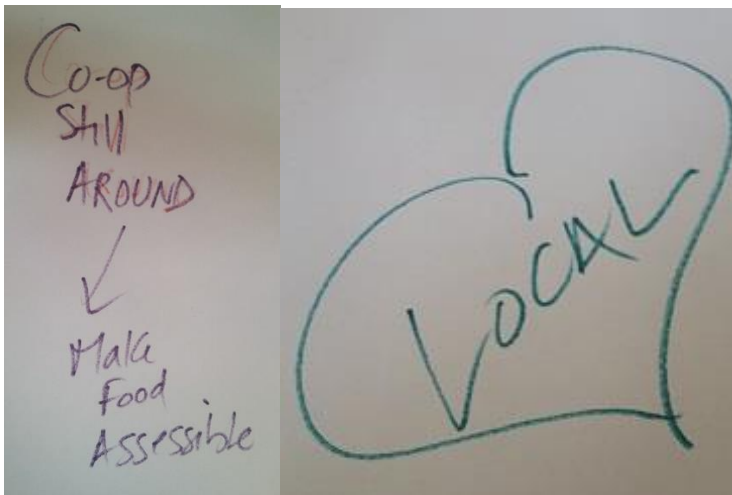 Co-op
Still
AROUND
Make
Food
Assessible
LOCAL